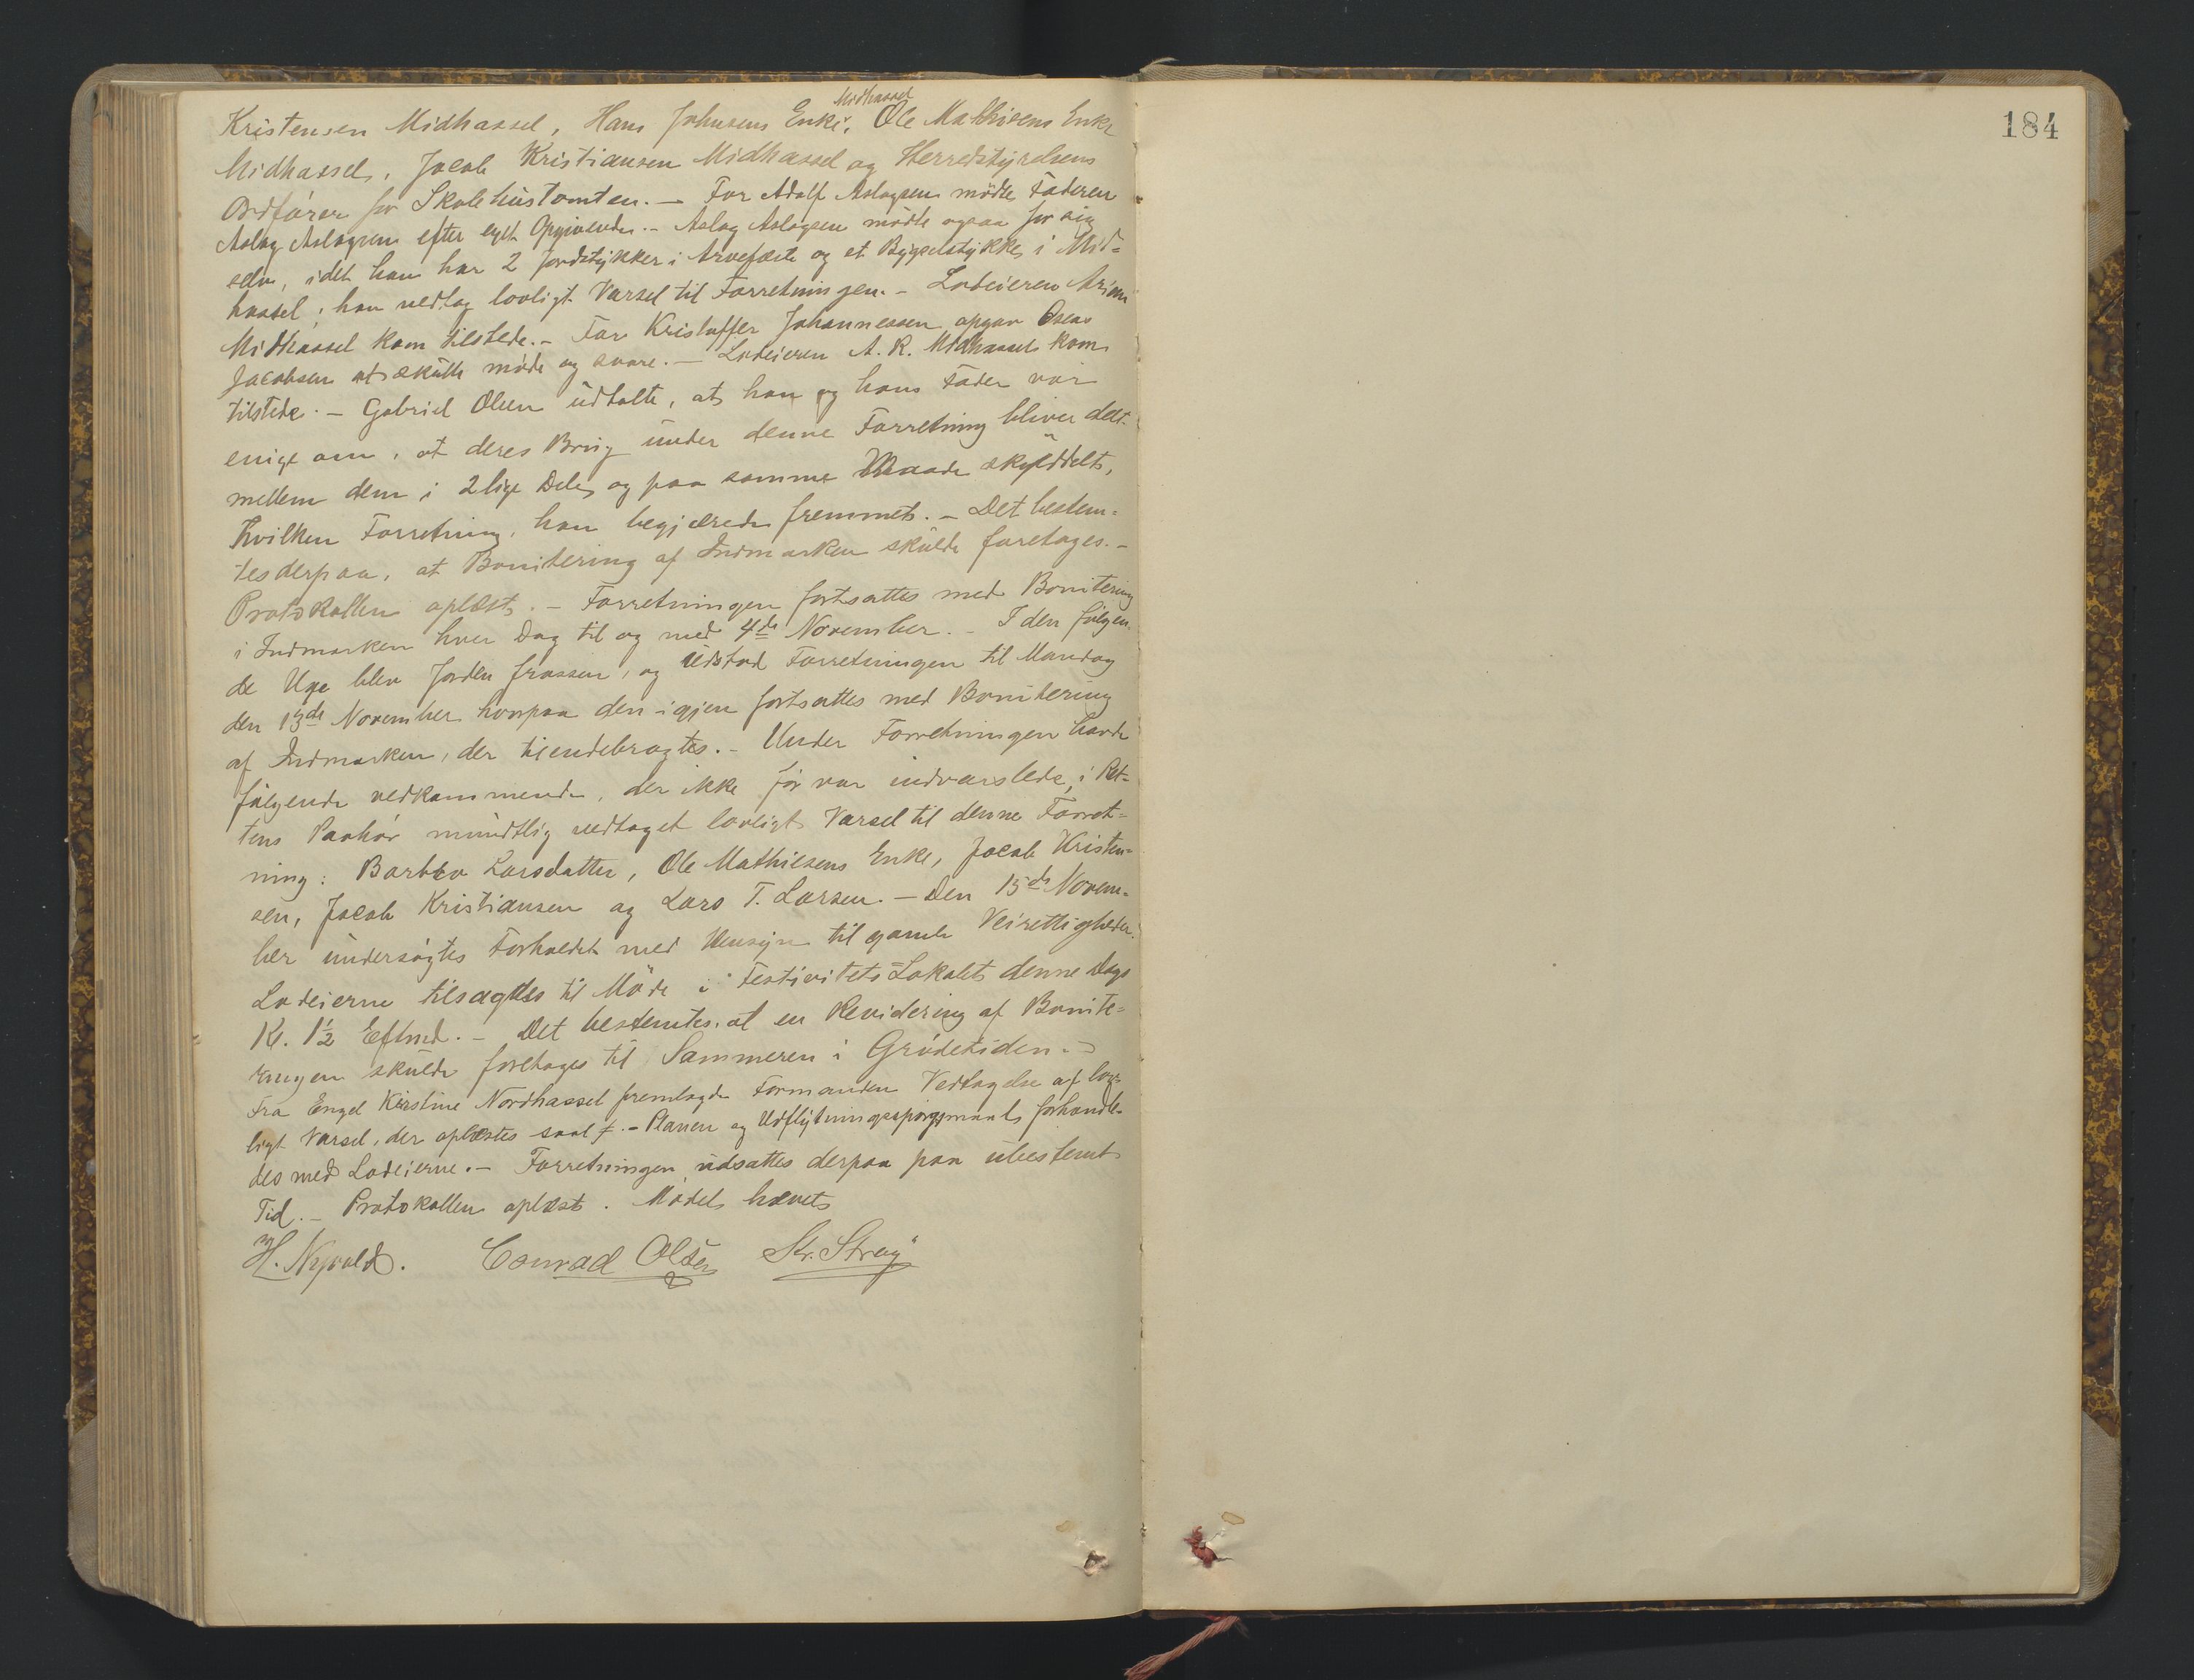 Midhassel
Kristensen Midhassel, Hans Johnsens Enke, Ole Mathisens Enke
Midhassel, Jacob Kristiansen Midhassel og Herredstyrelsens
Ordfører for Skolehustomten. — For Adolf Aslagsen mødte Faderen
Aslag Aslagsen efter eget Opgivende. - Aslag Aslagsen mødte ogsaa for sig
selv, idet han har 2 Jordstykker i Arvefæste og et Bygselstykke i Mid=
hassel; han vedtog lovligt Varsel til Forretningen. - Lodeieren
Midhassel kom tilstede. - For Kristoffer Johannessen opgav Oscar
Jacobsen at skulle møde og svare. — Lodeieren A. K. Midhassel kom
tilstede. — Gabriel Olsen udtalte, at han og hans Fader var
enige om, at deres Brug under denne Forretning bliver delt
mellem dem i 2 lige Dele og paa samme Maade skylddelt,
hvilken Forretning han begjærede fremmet. — Det bestem=
tes derpaa, at Bonitering af Indmarken skulde foretages. -
Protokollen oplæst. - Forretningen fortsattes med Bonitering
i Indmarken hver Dag til og med 4de November. - I den følgen=
de Uge blev Jorden frossen, og udstod Forretningen til Mandag
den 13de November hvorpaa den igjen fortsattes med Bonitering
af Indmarken, der tilendebragtes. - Under Forretningen havde
følgende vedkommende, der ikke før var indvarslede, i Ret=
tens Paahør mundtlig vedtaget lovligt Varsel til denne Forret=
ning: Barbro Larsdatter, Ole Mathiesens Enke, Jacob Kristen=
sen, Jacob Kristiansen og Lars T. Larsen. — Den 15de Novem=
ber undersøgtes Forholdet med Hensyn til gamle Veirettigheder.
Lodeierne tilsagdes til Møde i Festivitets=Lokalet denne Dags
Kl. 1½ Eftmd. - Det bestemtes, at en Revidering af Bonite=
ringen skulde foretages til Sommeren i Grødetiden. -
Fra Engel Kirstine Nordhassel fremlagde Formanden Vedtagelse af lov=
ligt Varsel, der oplæstes saal. - Planen og Udflytningsspørgsmaalet forhandle=
des med Lodeierne. - Forretningen udsattes derpaa paa ubestemt
Tid. - Protokollen oplæst. Mødet hævet
H. Nyvold. Conrad Olsen Kr. Stray
184